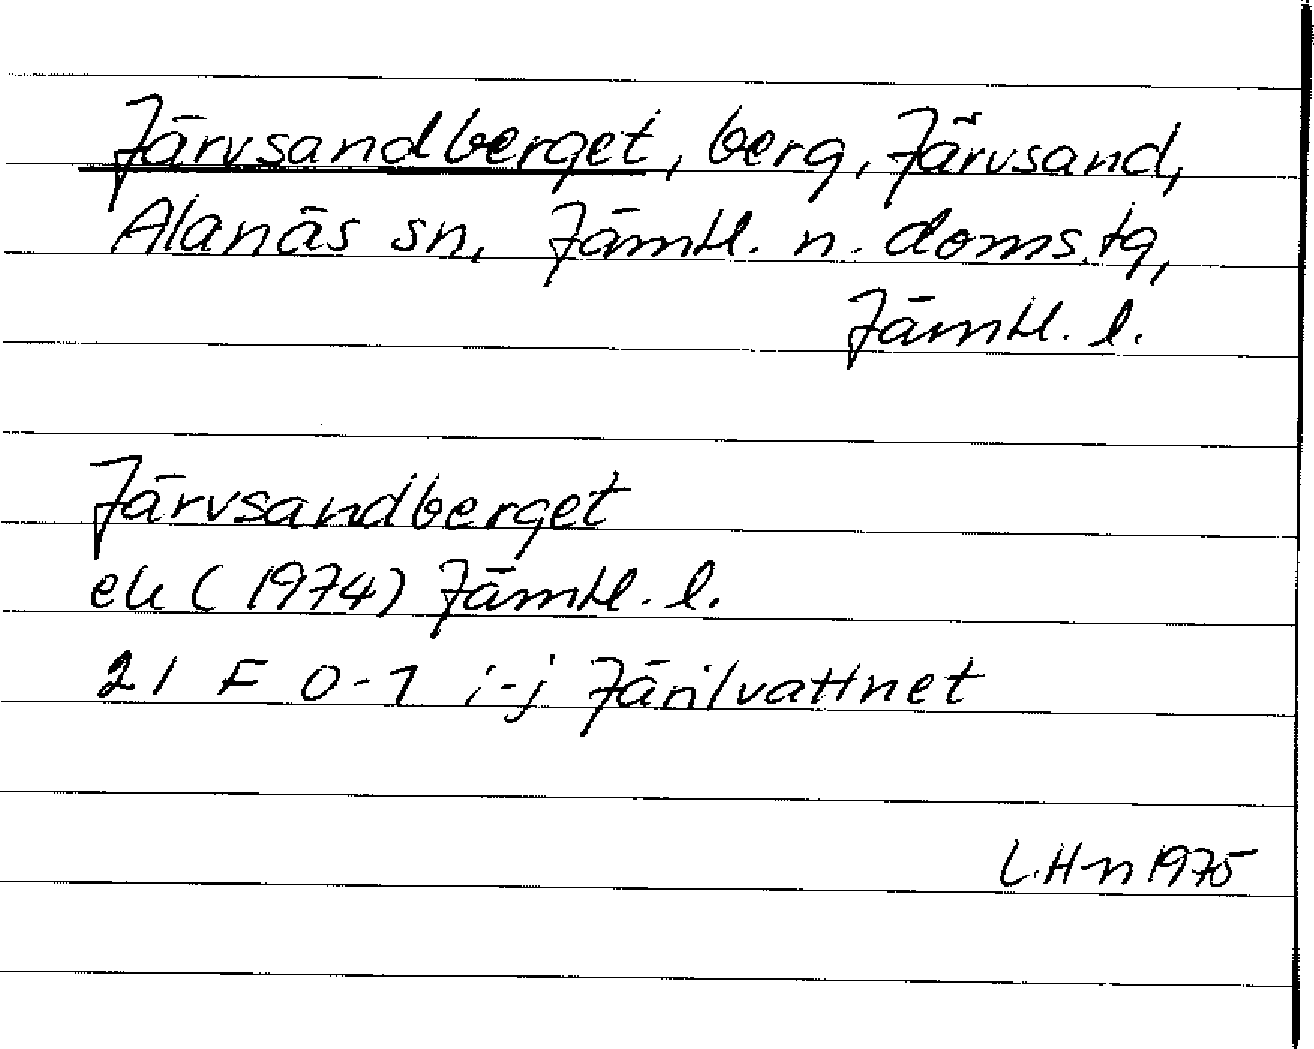 Järvsandberget, berg, Järvsand,
Alanäs sn, Jämtl. n. doms.tg,
Jämtl. l.
Järvsandberget
ek (1974) Jämtl. l.
21 F 0-1 i-j Järilvattnet
L.H-n 1975